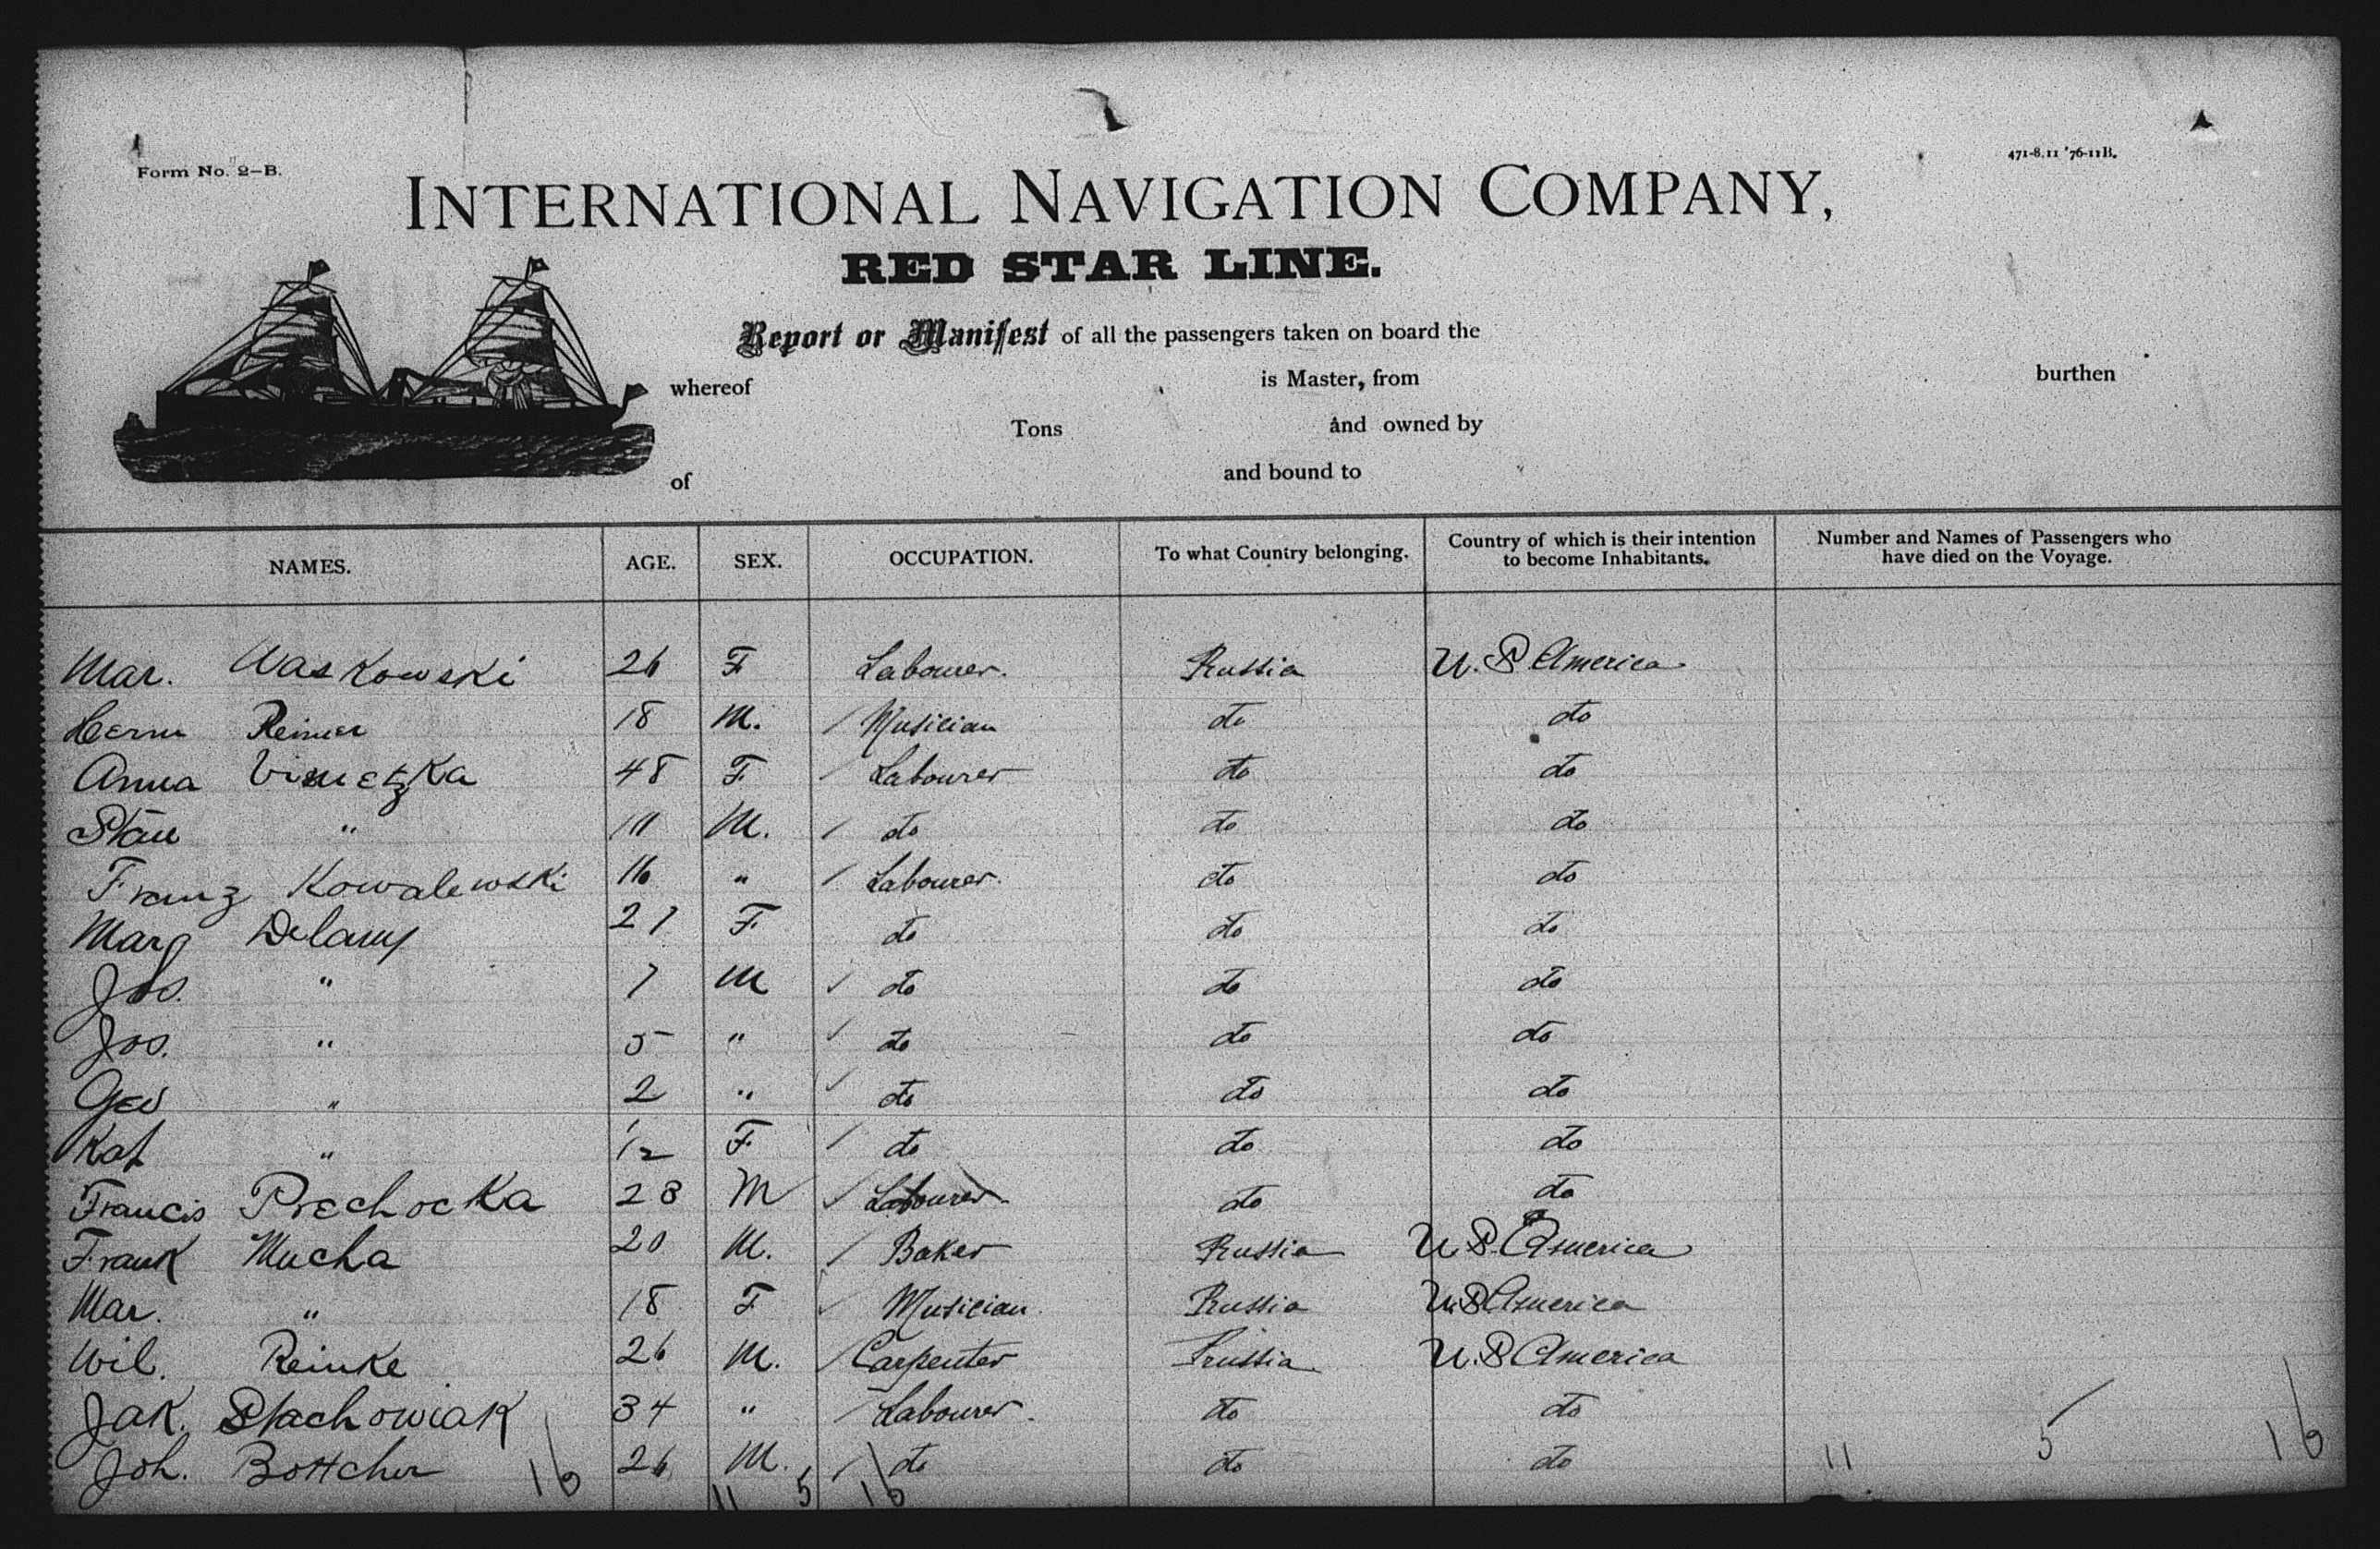 Form No. 2-B.
471-8.11 '76-11B.
INTERNATIONAL NAVIGATION COMPANY,
RED STAR LINE.
Report or Manifest of all the passengers taken on board the
whereof is Master, from burthen
Tons and owned by
of and bound to
NAMES. AGE. SEX. OCCUPATION. To what Country belonging. Country of which is their intention to become Inhabitants. Number and Names of Passengers who have died on the Voyage.
Mar. Waskowski 26 F Labourer. Russia U.S America
Herm Reimer 18 M. / Musician do do
Anna 48 F / Labourer do do
Stan " M. / do do do
Franz Kowalewski 16 " / Labourer. do do
Marg Delany 27 F do do do
Jos. " 7 M / do do do
Jos. " 5 " / do do do
Geo " 2 " / do do do
Kat " F / do do do
Francis Prechocka 28 M / Labourer do do
Frank Mucha 20 M. / Baker Russia U.S. America
Mar. " 18 F / Musician. Russia U.S America
Wil. Reinke 26 M. / Carpenter Prussia. U.S America
Jak. Stachowiak 34 " / Labourer. do do
Joh. Bottcher 26 M. / do do do 11 5 16
16 11 5 16